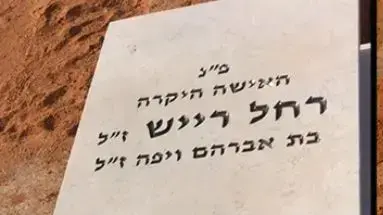 פ״נ
האישה היקרה
רחל רייש ז״ל
בת אברהם ויפה ז״ל